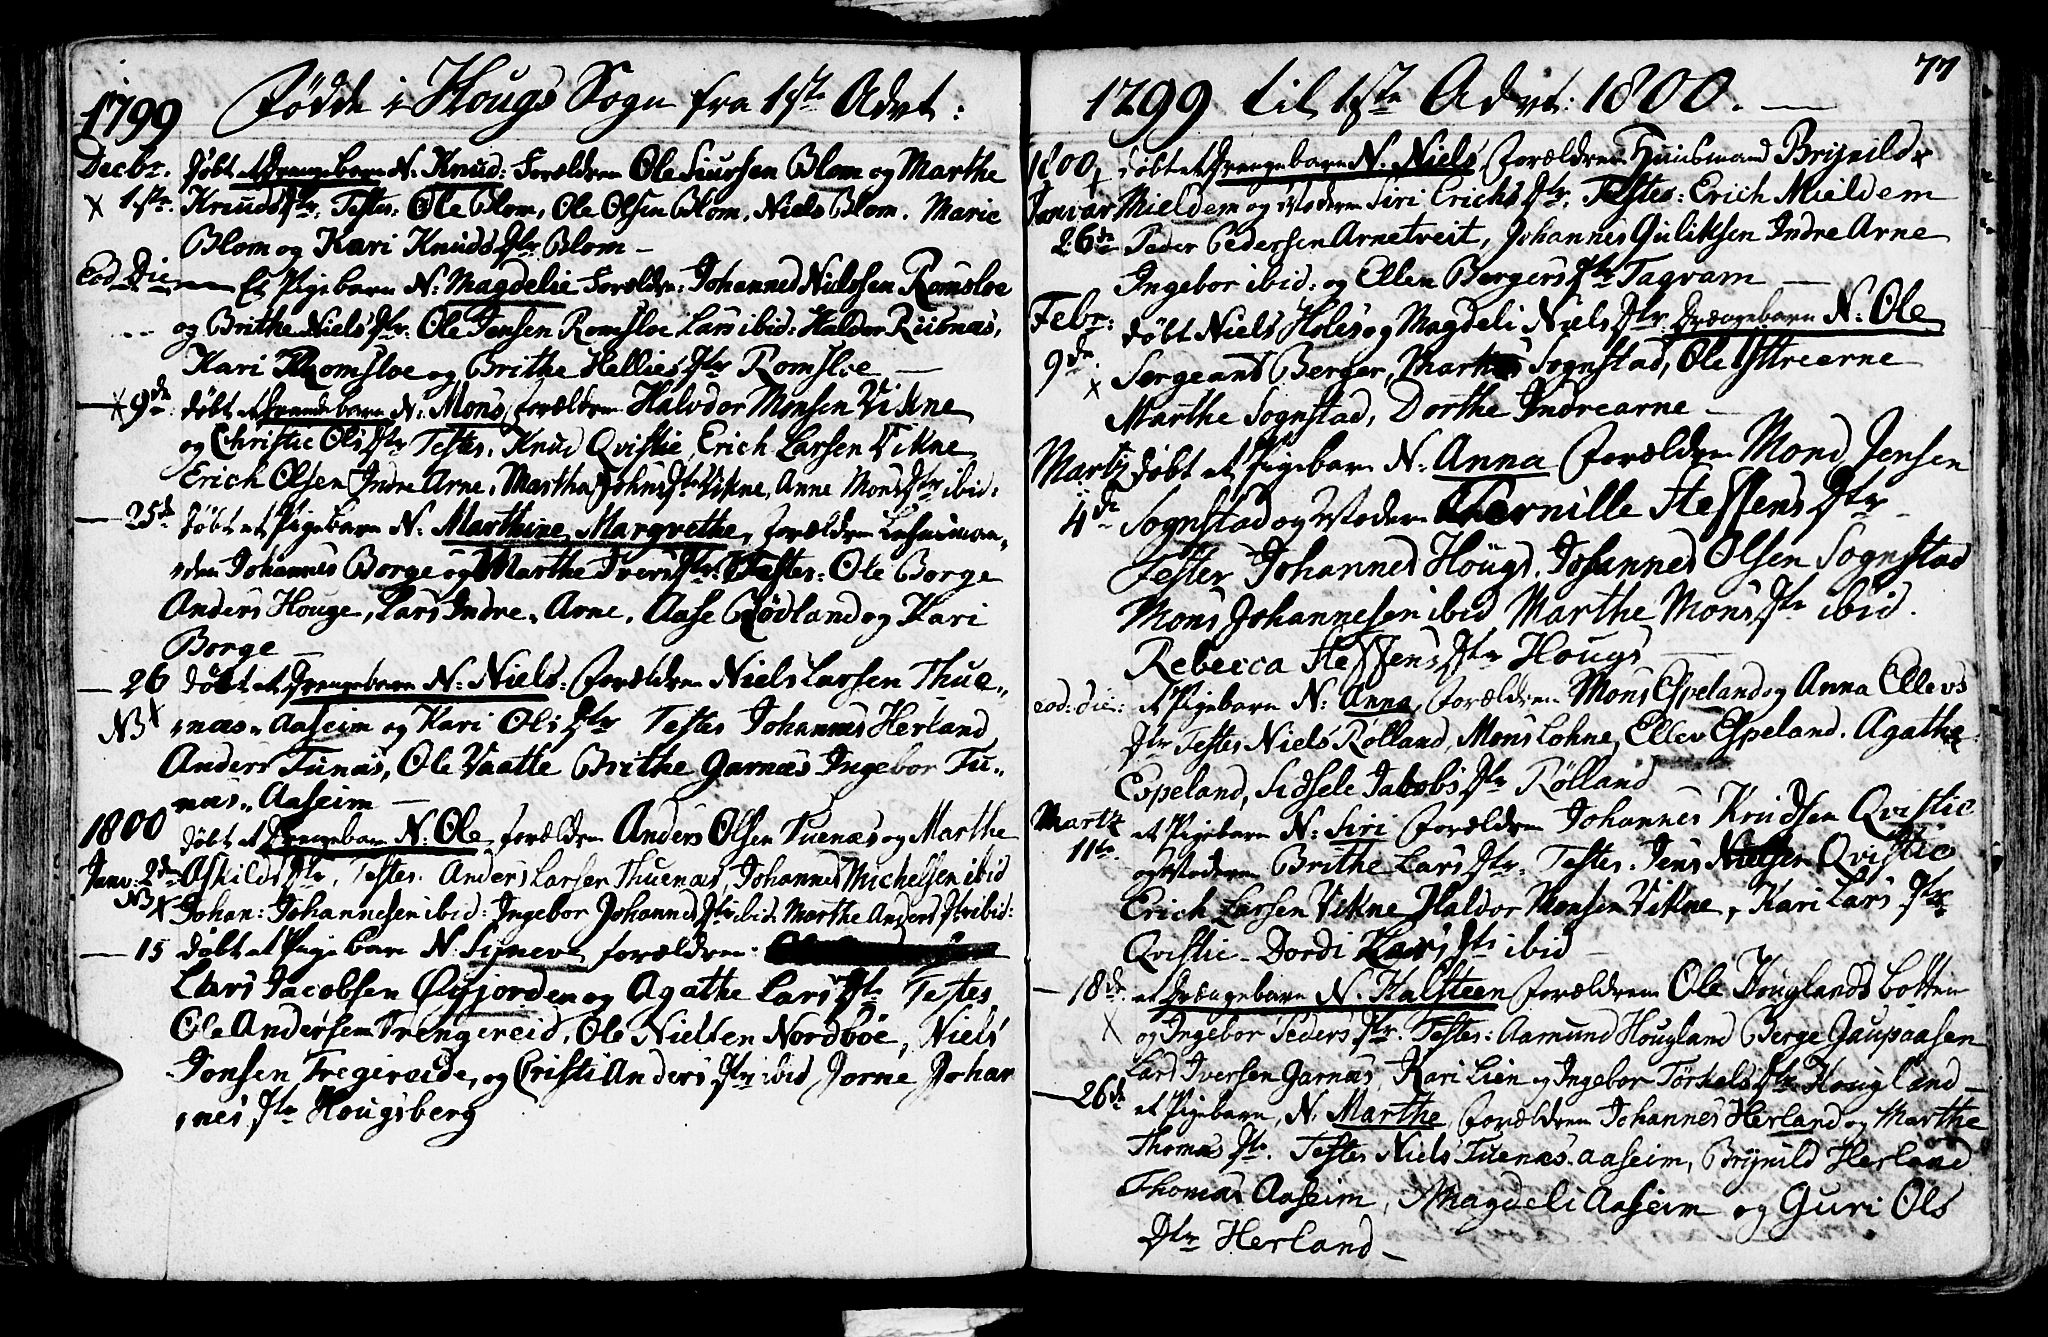 1799 Fødde i Hougs Sogn fra 1ste Advt:
Decbr. døbt et Drengebarn N. Knud: Forældren Ole Siursen Blom og Marthe
x 1ste. Knuds Dtr. Testes: Ole Blom, Ole Olsen Blom, Niels Blom. Marie
Blom og Kari Knuds Dtr Blom –
Eod Die — Et Pigebarn N: Magdelie Forældr: Johannes Nielssen Romsloe
og Brithe Niels Dtr. Ole Jensen Romsloe Lars ibid: Haldor Riisnæs,
Kari Romsloe og Brithe Hellies Dtr Romsloe –
x 9de. døbt et Drengebarn N. Mons, forældren Halvdor Monsen Vikne
og Christie Ols Dtr Testes. Knud Qvistie, Erich Larsen Vikne
Erich Olsen Indre Arne. Martha Johns Dtr Vikne, Anne Mons Dtr ibid:
— 25de døbt et Pigebarn N: Marthine Margrethe, forældren
den Johannes Borge og Marthe Ivers Dtr. Testes: Ole Borge
Anders Houge, Lars Indre Arne. Aase Rødland og Kari
Borge –
— 26 døbt et Drengebarn N: Niels: forældren Niels Larsen Thue„
N3 x „næs„ Aaseim og Kari Ols Dtr Testes Johannes Herland
Anders Tunæs, Ole Vaatte Brithe Garnæs Ingebor Tu„
næs„ Aaseim –
1800 døbt et Drengebarn N: Ole, forældren Anders Olsen Tuenæs og Marthe
Janv: 2den Askilds Dtr, Testes. Anders Larsen Thuenæs, Johannes Michelsen ibid
N3 x Johan: Johannesen ibid: Ingebor Johannes Dtr ibid. Marthe Anders Dtr ibid:
— 15 døbt et Pigebarn N. Signeve forældren:
Lars Jacobsen Øyjorden og Agathe Lars Dtr Testes
Ole Andersen Trengereid, Ole Nielsen Nordbøe, Niels
Jonsen Tregereide, og Cristi Anders Dtr ibid, Jorne Johan
„nes Dtr Hougsberg
77
1799 til 1ste Advt: 1800. —
1800, døbt et Drengebarn N. Niels forældren Huusmand Brynild
Janvar Mieldem og Moderen Siri Erichs Dtr, Testes: Erich Mieldem
26de Peder Pedersen Arnetveit, Johannes Guliksen Indre Arne
Ingebor ibid: og Ellen Bergers Dtr Tagvam —
Febr: døbt Niels Holes og Magdeli Niels Dtr Drengebarn N: Ole
9de x Sergeant Berger, Sognstad, Ole Yttrearne
Marthe Sognstad, Dorthe Indrearne –
Martj døbt et Pigebarn N: Anna forældren Mons Jensen
4de Sognstad og Moderen Pernille Steffens Dtr –
Tester Johannes Hougs, Johannes Olsen Sognstad
Mons Johannesen ibid Marthe Mons Dtr ibid.
Rebecca Steffens Dtr Hougs —
eod: die: et Pigebarn N: Anna, forældren Mons Espeland og Anna Ellevs
Dtr Testes Niels Rølland, Mons Lohne, Ellev Espeland. Agathe
Espeland, Sidsele Jacobs Dtr Rølland
Martz et Pigebarn N: Siri forældren Johannes Knudsen Qvistie
11te og Moderen Brithe Lars Dtr. Testes. Jens Nielsen Qvistie
Erich Larsen Vikne Haldor Monsen Vikne, Kari Lars Dtr
Qvistie – Dordi Lars Dtr ibid –
— 18de et Drengebarn N. Halsteen forældren Ole Houglands botten
x og Ingebor Peders Dtr. Testes: Aamund Hougland Berge Gaupaasen
Lars Iversen Garnæs, Kari Lien og Ingebor Torkels Dtr Hougland –
— 26de et Pigebarn, N. Marthe, forældren Johannes Herland og Marthe
Thomas Dtr. Testes Niels Tuenæs Aaseim, Brynild Herland
Thomas Aaseim, Magdeli Aaseim og Guri Ols
Dtr Herland –